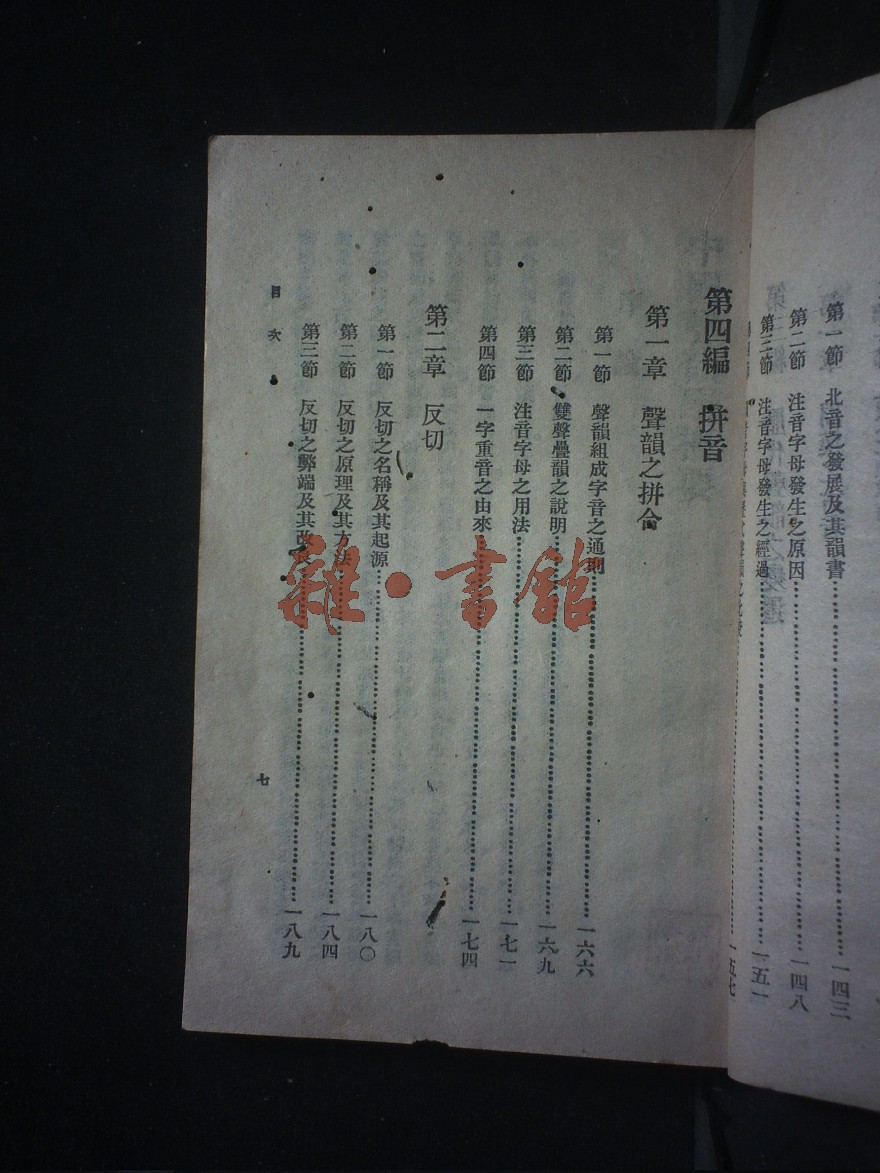 第一節　北音之發展及其韻書……一四三
第二節　注音字母發生之原因……一四八
第三節　注音字母發生之經過……一五一
一五七
第四編　拼音
第一章　聲韻之拼合
第一節　聲韻組成字音之通則……一六六
第二節　雙聲疊韻之說明……一六九
第三節　注音字母之用法……一七一
第四節　一字重音之由來……一七四
第二章　反切
第一節　反切之名稱及其起源……一八〇
第二節　反切之原理及其方法……一八四
第三節　反切之弊端及其改良……一八九
目次
七
雜·書館